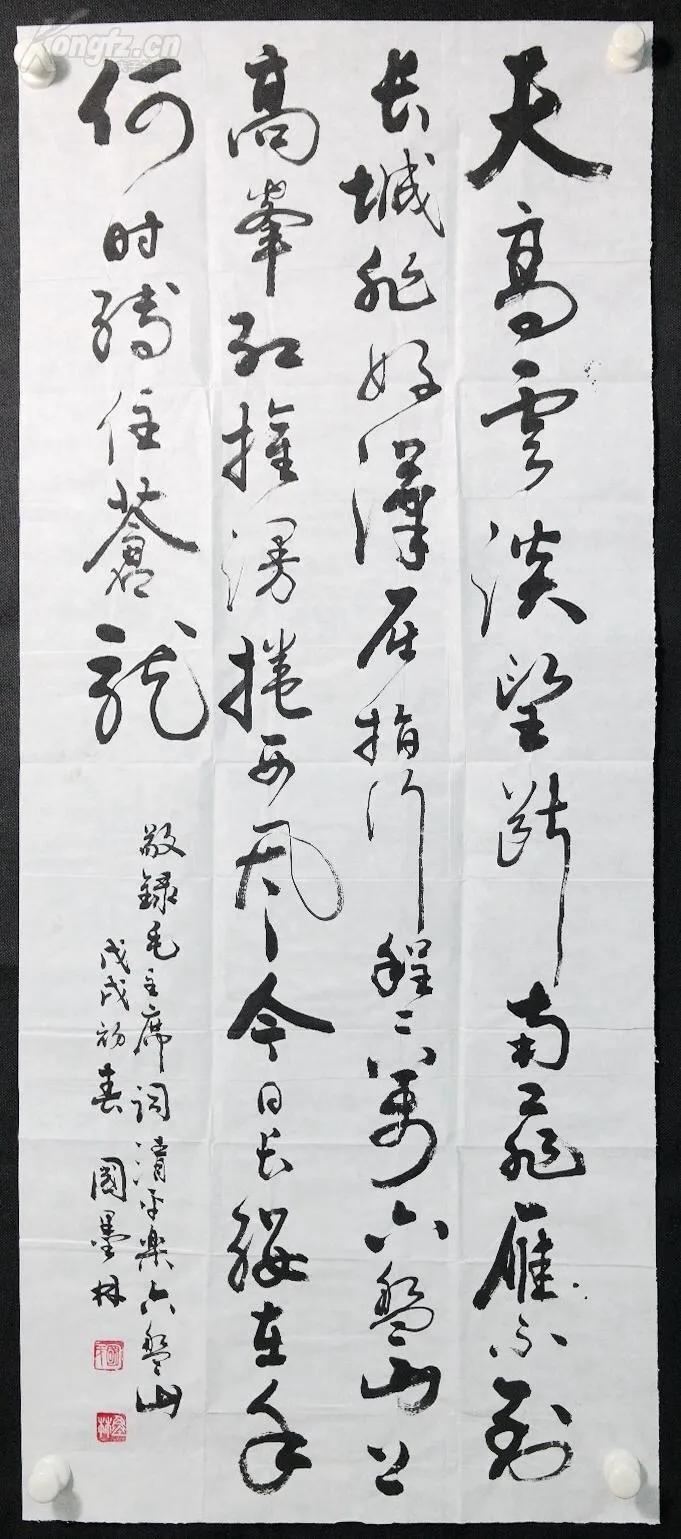 Kongfz.cn
天高雲淡望斷南飛雁不到
长城非好漢屈指行程二萬六盤山上
高峯红旗漫捲西风今日长缨在手
何时缚住蒼龍
敬録毛主席词清平樂六盤山
戊戌初春 國墨林